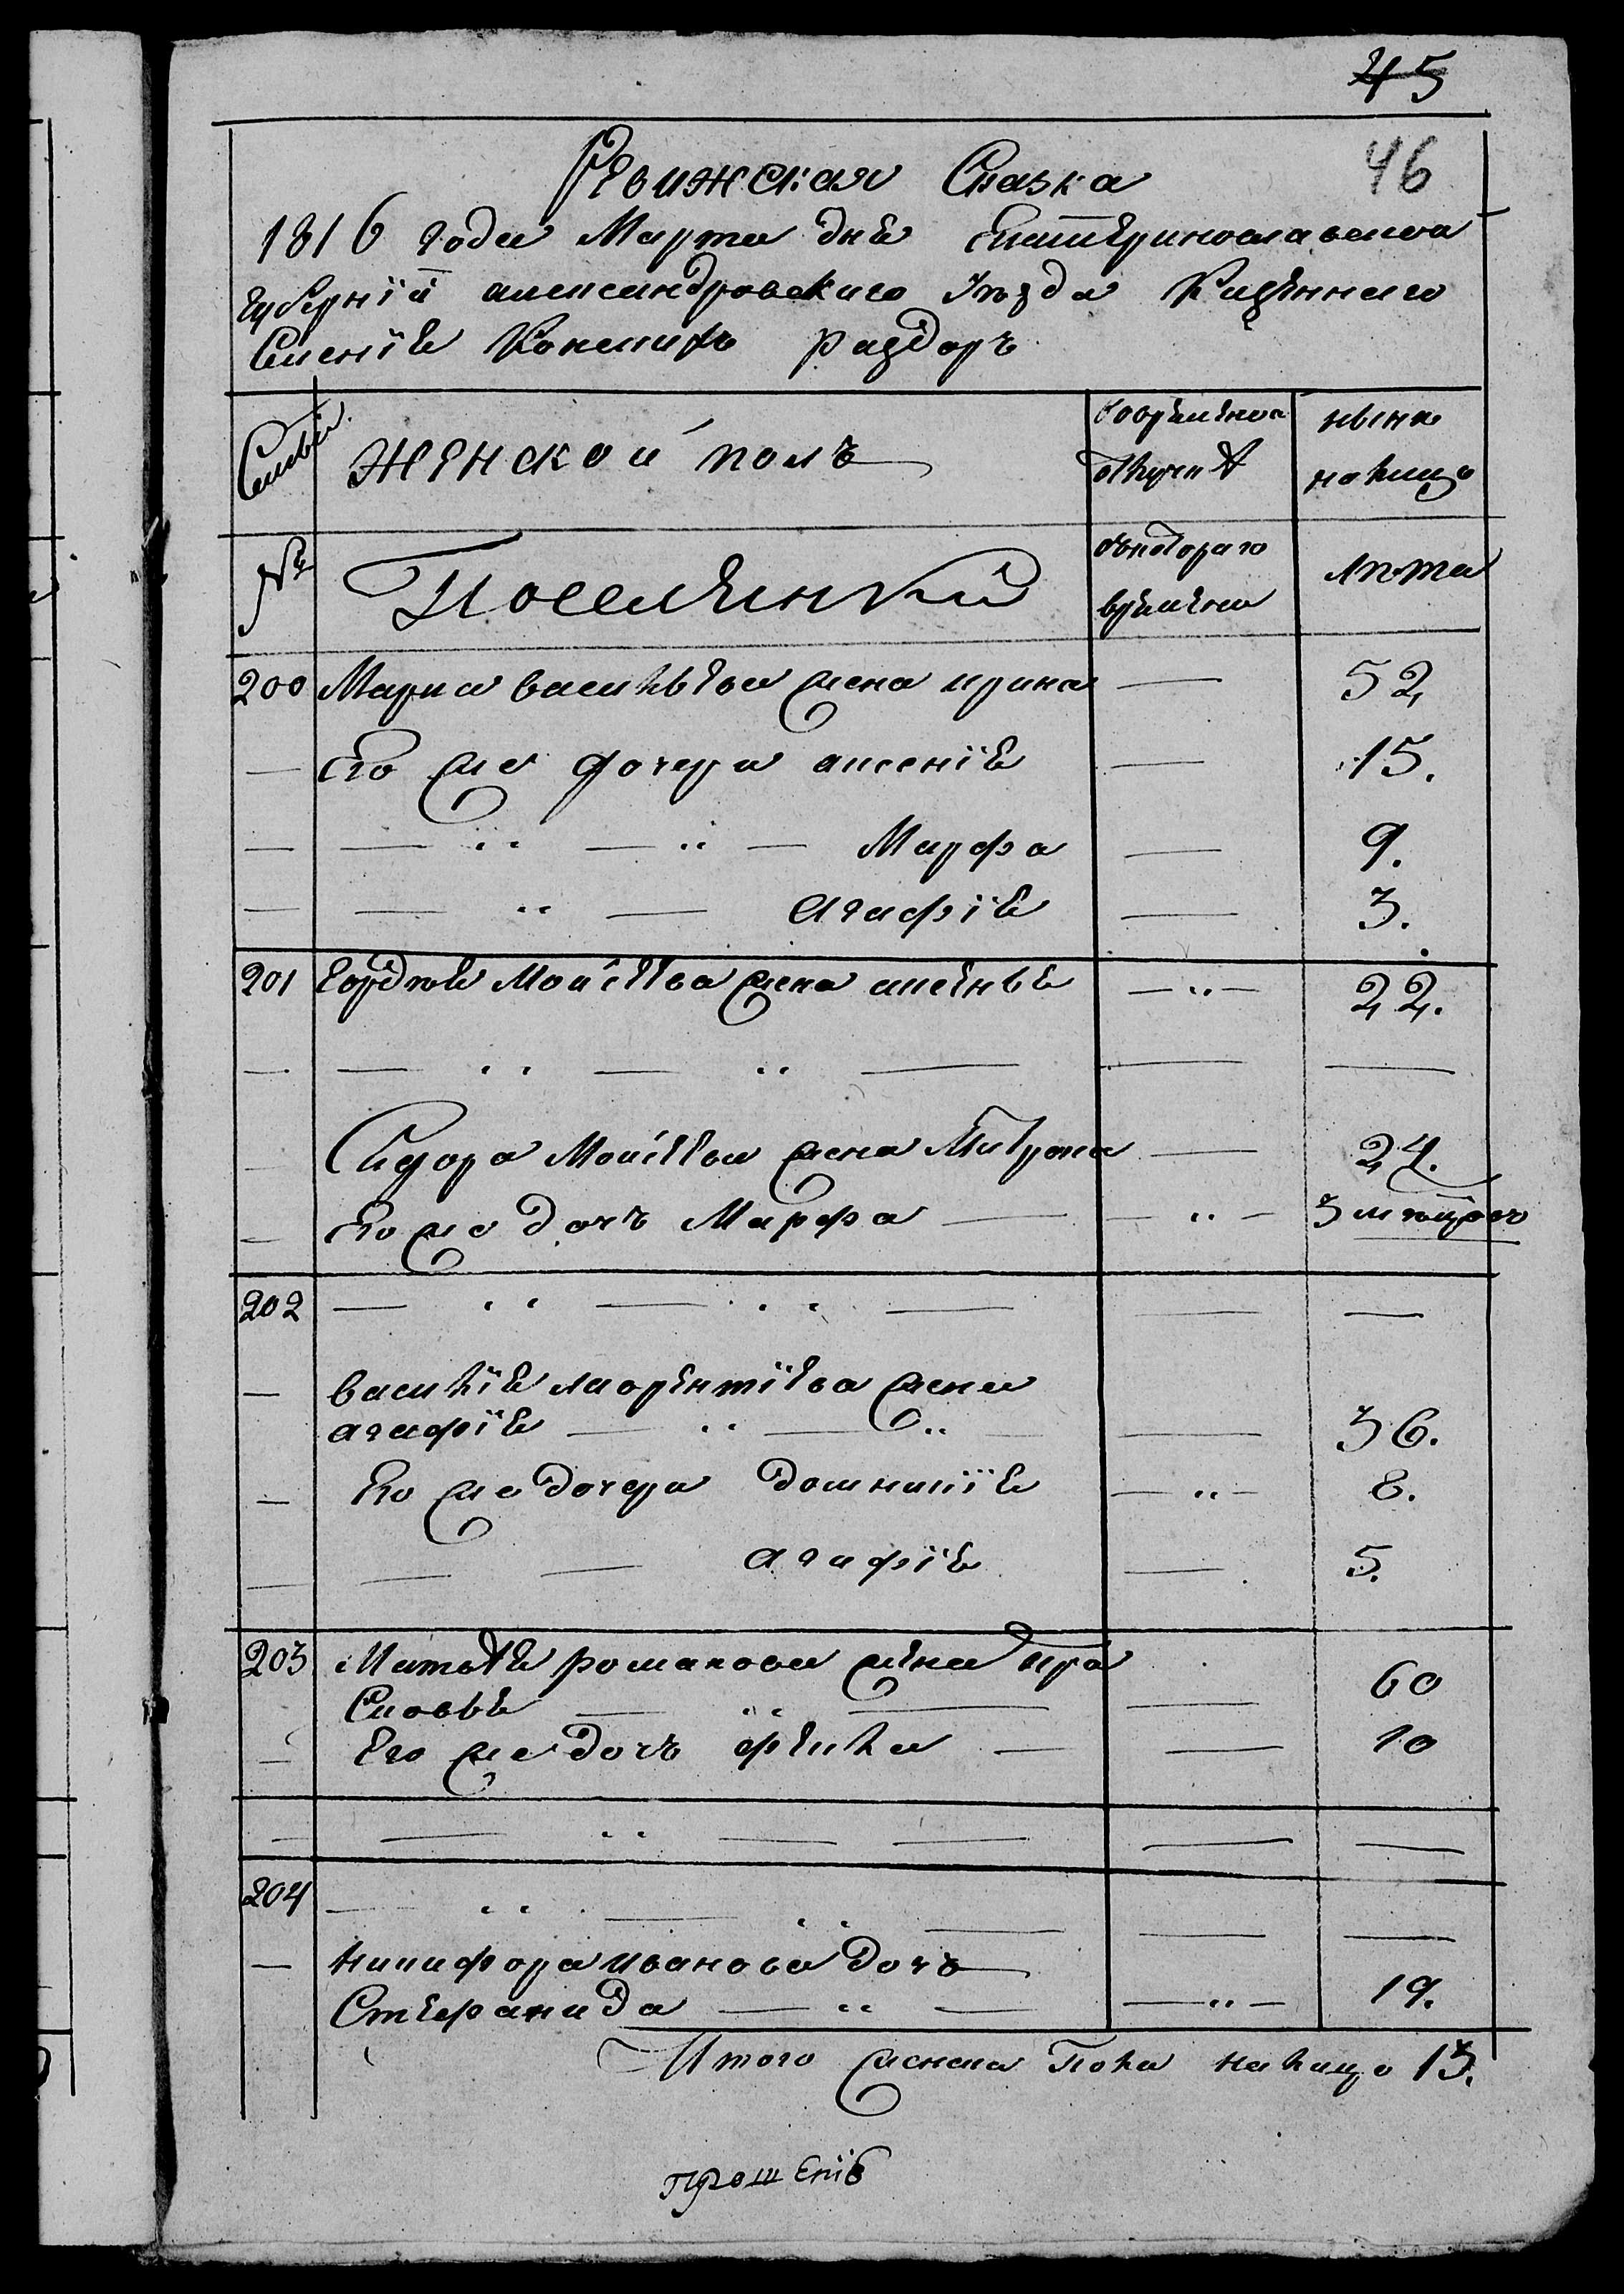 45
46
Ревижская Сказка
1816 года Марта дня Екатеринославской
губернїи александровского уезда Казенного
Селенїя Конскихъ раздоръ
Семьи женской полъ
во временной отлучкѣ
ныне налицо
№ Поселянки
съкоторого времени
лѣта
200 Марка васильева жена ирина — 52
— Его же дочери аксенїя — 15.
— — " — " — Марфа — 9.
— — " — агафїя — 3.
201 Гордѣя Моисеева жена аксенья — " — 22.
— — " — " — — —
— Сидора Моисеева жена Матрона — 24.
— Его же дочъ Марфа — — " — 3 мѣсяцовъ
202 — " — " — — —
— василїя лаврентїева жена
агафїя — " — " — — 36.
— Его же дочери домникїя — " — 8.
— — — агафїя — 5.
203 Матвѣя романова жена пра
сковья — " — — 60
— Его же дочъ фекла — — 10
— — " — — — —
204 — " — " — — —
— никифора иванова дочь
Стефанида — " — — " — 19.
Итого женска пола налицо 13.